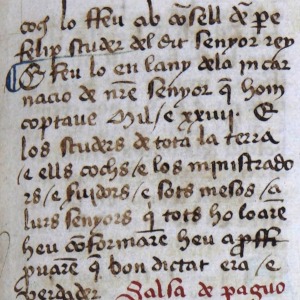 coch lo ffeu ab cõsell de𝑛 pe
felip scuder del dit senyor rey
E feu lo en lany de la in car
nacio de nr̃e senyor q̃ hom
coptaue Mil / e xxiiii. E
los scuders de tota la terra
e ells cochs / e los ministrado
rs / e suidors / e sots mesos / a
lurs senyors q̃ tots ho loarẽ
heu cõformarẽ heu aproff
puarẽ q̃ bon dictat era / e
verdader Salsa de paguo